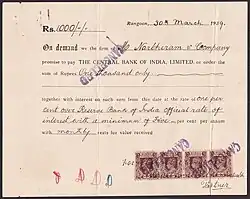 Rangoon, 30th March 1939.
Rs. 1000/-/-
On demand we the firm of Narthiram & Company
promise to pay THE CENTRAL BANK OF INDIA, LIMITED, or order the
sum of Rupees One thousand only
together with interest on such sum from this date at the rate of one per
cent over Reserve Bank of India official rate of
interest with a minimum of Five per cent per annum
with monthly rests for value received
CANCELLED
Partner